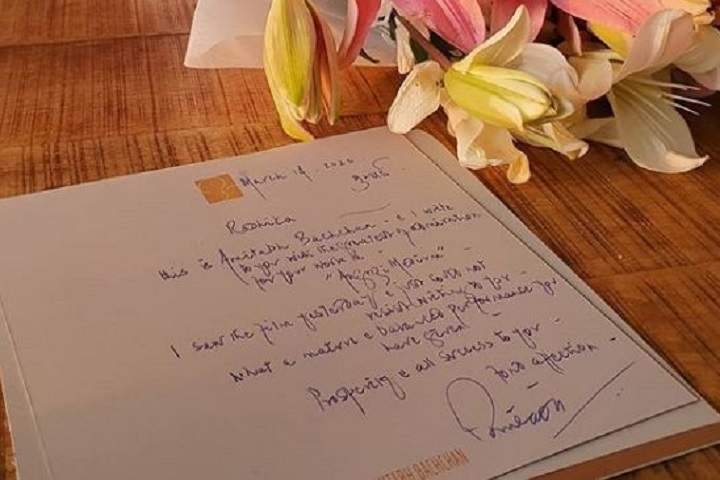 March 14, 2020
Radhika
this is Amitabh Bachchan - & I write
to you with the greatest of admiration
for your work in
"Angrezi Medium" -
I saw the film yesterday & just could not
resist writing to you -
What a mature & balanced performance you
have given -
Prosperity & all success to you -
affection -
AMITABH BACHCHAN